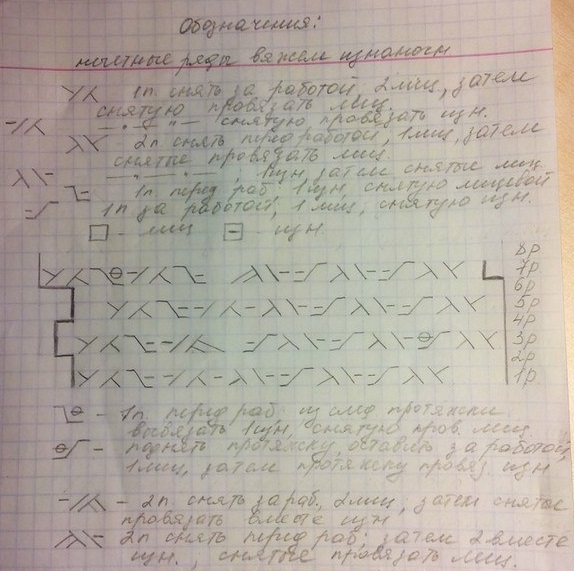 Обозначения:
нечетные ряды вяжем изнаночн
1п. снять за работой, 2 лиц, затем
снятую провязать лиц.
— " — " — снятую провязать изн.
2п снять перед работой, 1 лиц, затем
снятые провязать лиц.
— " — 1 изн, затем снятые лиц.
1п. перед раб 1 изн, снятую лицевой
1п за работой, 1 лиц, снятую изн.
- лиц - изн.
8р
7р
6р
5р
4р
3р
2р
1р
- 1п. перед раб из след протяжки
вывязать 1 изн, снятую пров. лиц
- поднять протяжку, оставить за работой,
1 лиц, затем протяжку провяз. изн
- 2п. снять за раб., 2 лиц, затем снятые
провязать вместе изн
- 2п снять перед раб; затем 2 вместе
изн., снятые провязать лиц.